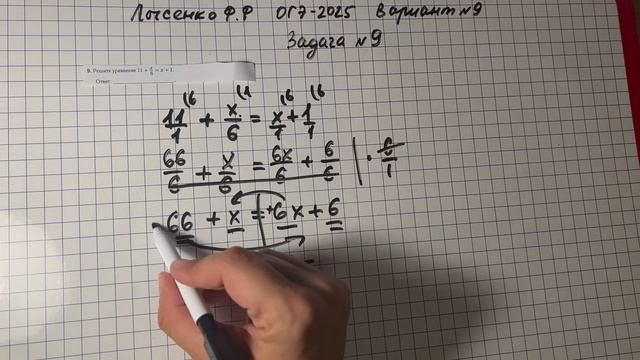 Лысенко Ф.Ф ОГЭ-2025 Вариант №9
Задача №9
9. Решите уравнение 11 + x/6 = x + 1.
Ответ:
11/1 (6 + x/6 (1 = x/1 (6 + 1/1 (6
66/6 + x/6 = 6x/6 + 6/6 | · 6/1
66 + x = +6x + 6